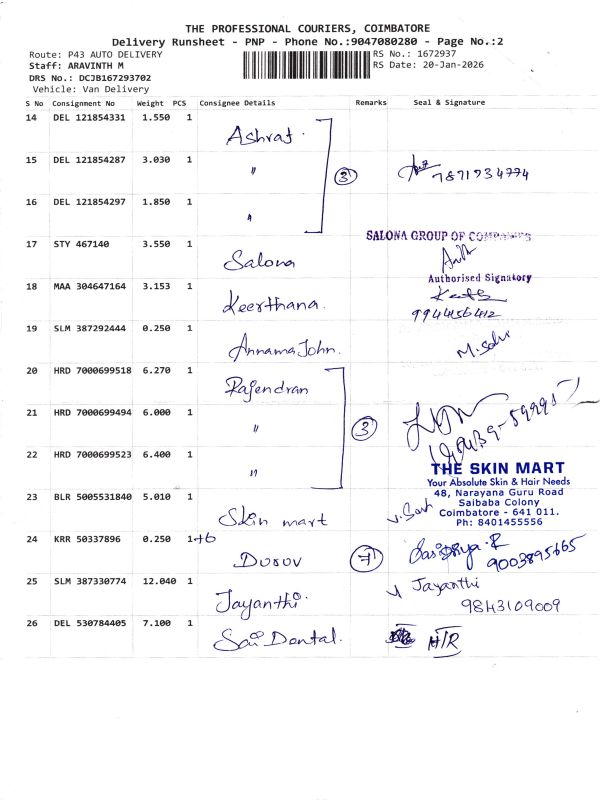 THE PROFESSIONAL COURIERS, COIMBATORE
Delivery Runsheet - PNP - Phone No.:9047080280 - Page No.:2
Route: P43 AUTO DELIVERY
RS No.: 1672937
Staff: ARAVINTH M
RS Date: 20-Jan-2026
DRS No.: DCJB167293702
Vehicle: Van Delivery
S No Consignment No Weight PCS Consignee Details Remarks Seal & Signature
14 DEL 121854331 1.550 1 Ashraf.
15 DEL 121854287 3.030 1 " 3 7871734774
16 DEL 121854297 1.850 1 "
17 STY 467140 3.550 1 Salona
SALONA GROUP OF COMPANIES
Authorised Signatory
18 MAA 304647164 3.153 1 Keerthana.
9944156412
19 SLM 387292444 0.250 1 Annama John.
20 HRD 7000699518 6.270 1 Rajendran
21 HRD 7000699494 6.000 1 " 3
22 HRD 7000699523 6.400 1 "
THE SKIN MART
Your Absolute Skin & Hair Needs
48, Narayana Guru Road
Saibaba Colony
Coimbatore - 641 011.
Ph: 8401455556
23 BLR 5005531840 5.010 1 Skin mart
24 KRR 50337896 0.250 1+6 Durov 7 9003895665
25 SLM 387330774 12.040 1 Jayanthi. Jayanthi
9843109009
26 DEL 530784405 7.100 1 Sai Dental. H/R